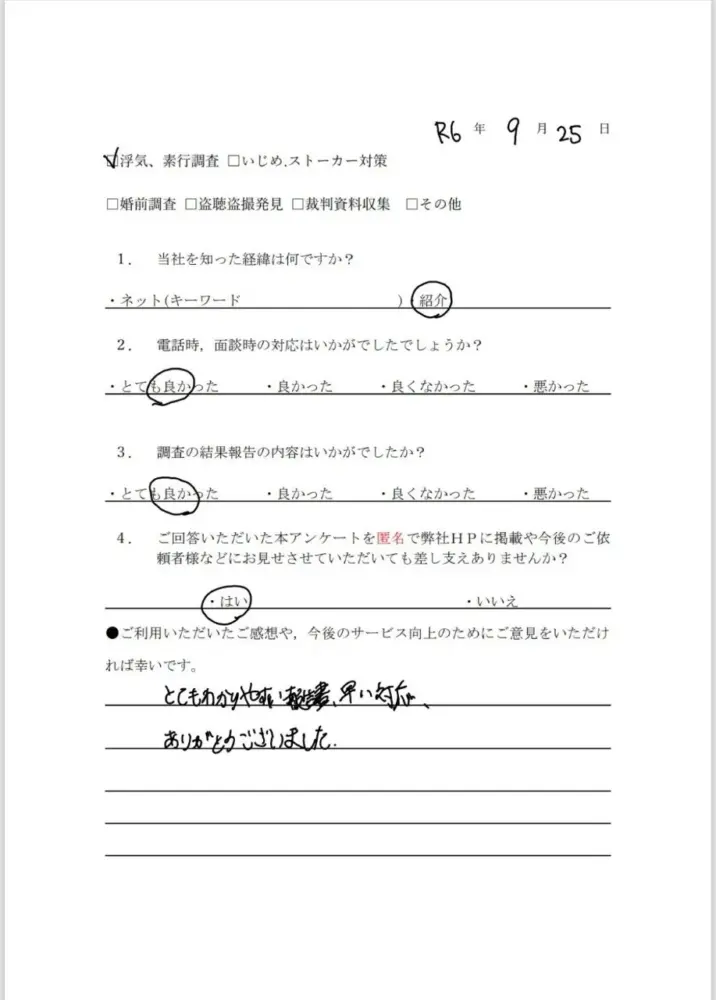 R6 年 9 月 25 日
☑浮気、素行調査 □いじめ,ストーカー対策
□婚前調査 □盗聴盗撮発見 □裁判資料収集 □その他
1. 当社を知った経緯は何ですか？
・ネット(キーワード )・紹介
2. 電話時，面談時の対応はいかがでしたでしょうか？
・とても良かった ・良かった ・良くなかった ・悪かった
3. 調査の結果報告の内容はいかがでしたか？
・とても良かった ・良かった ・良くなかった ・悪かった
4. ご回答いただいた本アンケートを匿名で弊社ＨＰに掲載や今後のご依
頼者様などにお見せさせていただいても差し支えありませんか？
・はい ・いいえ
●ご利用いただいたご感想や，今後のサービス向上のためにご意見をいただけ
れば幸いです。
とてもわかりやすい報告書、早い対応、
ありがとうございました.